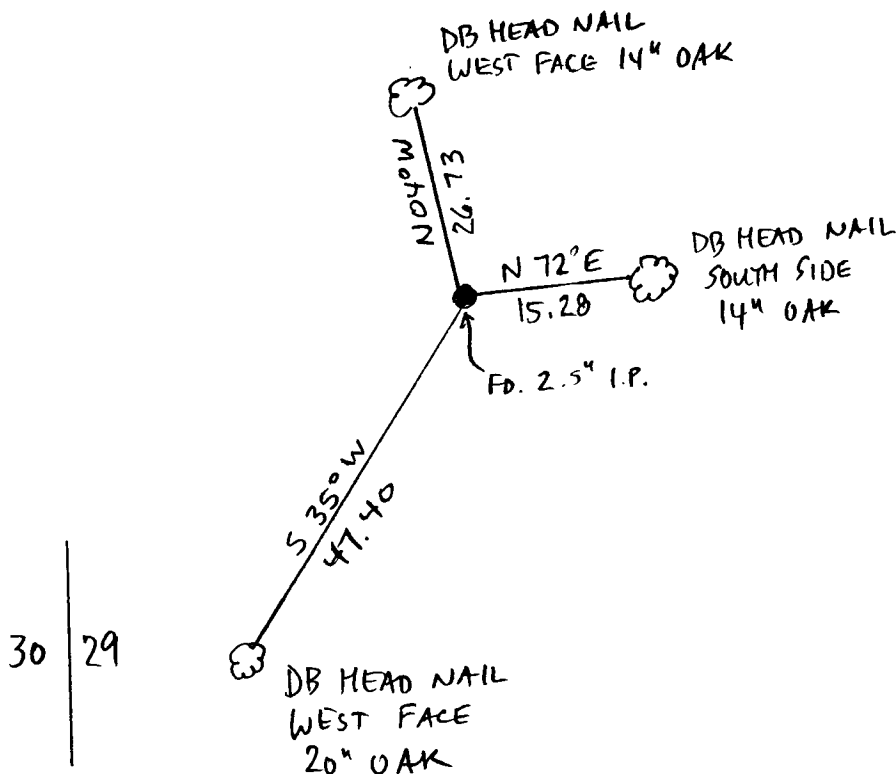 DB HEAD NAIL
WEST FACE 14" OAK
N04°W
26.73
N 72°E
15.28
DB HEAD NAIL
SOUTH SIDE
14" OAK
FD. 2.5" I.P.
S 35° W
47.40
30 29
DB HEAD NAIL
WEST FACE
20" OAK